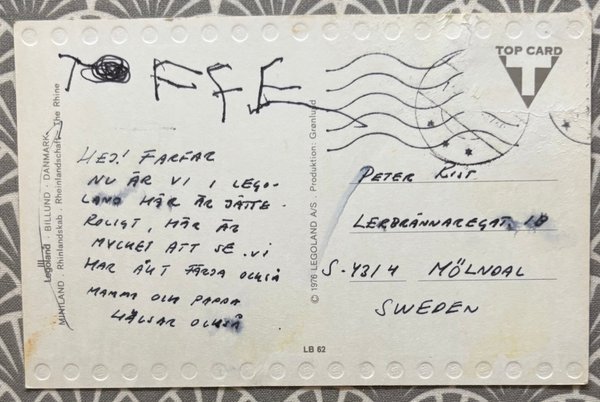 TOP CARD
T
TOFFE
HEJ! FARFAR
NU ÄR VI I LEGO-
LAND HÄR ÄR JÄTTE-
ROLIGT, HÄR ÄR
MYCKET ATT SE. VI
HAR ÅKT FÄRJA OCKSÅ
MAMMA OCH PAPPA
HÄLSAR OCKSÅ
Legoland · BILLUND · DANMARK
MINILAND · Rhinlandskab · Rheinlandschaft · The Rhine
© 1976 LEGOLAND A/S · Produktion: Grønlund
PETER
LERBRÄNNAREGAT. 1B
S-4314 MÖLNDAL
SWEDEN
LB 62